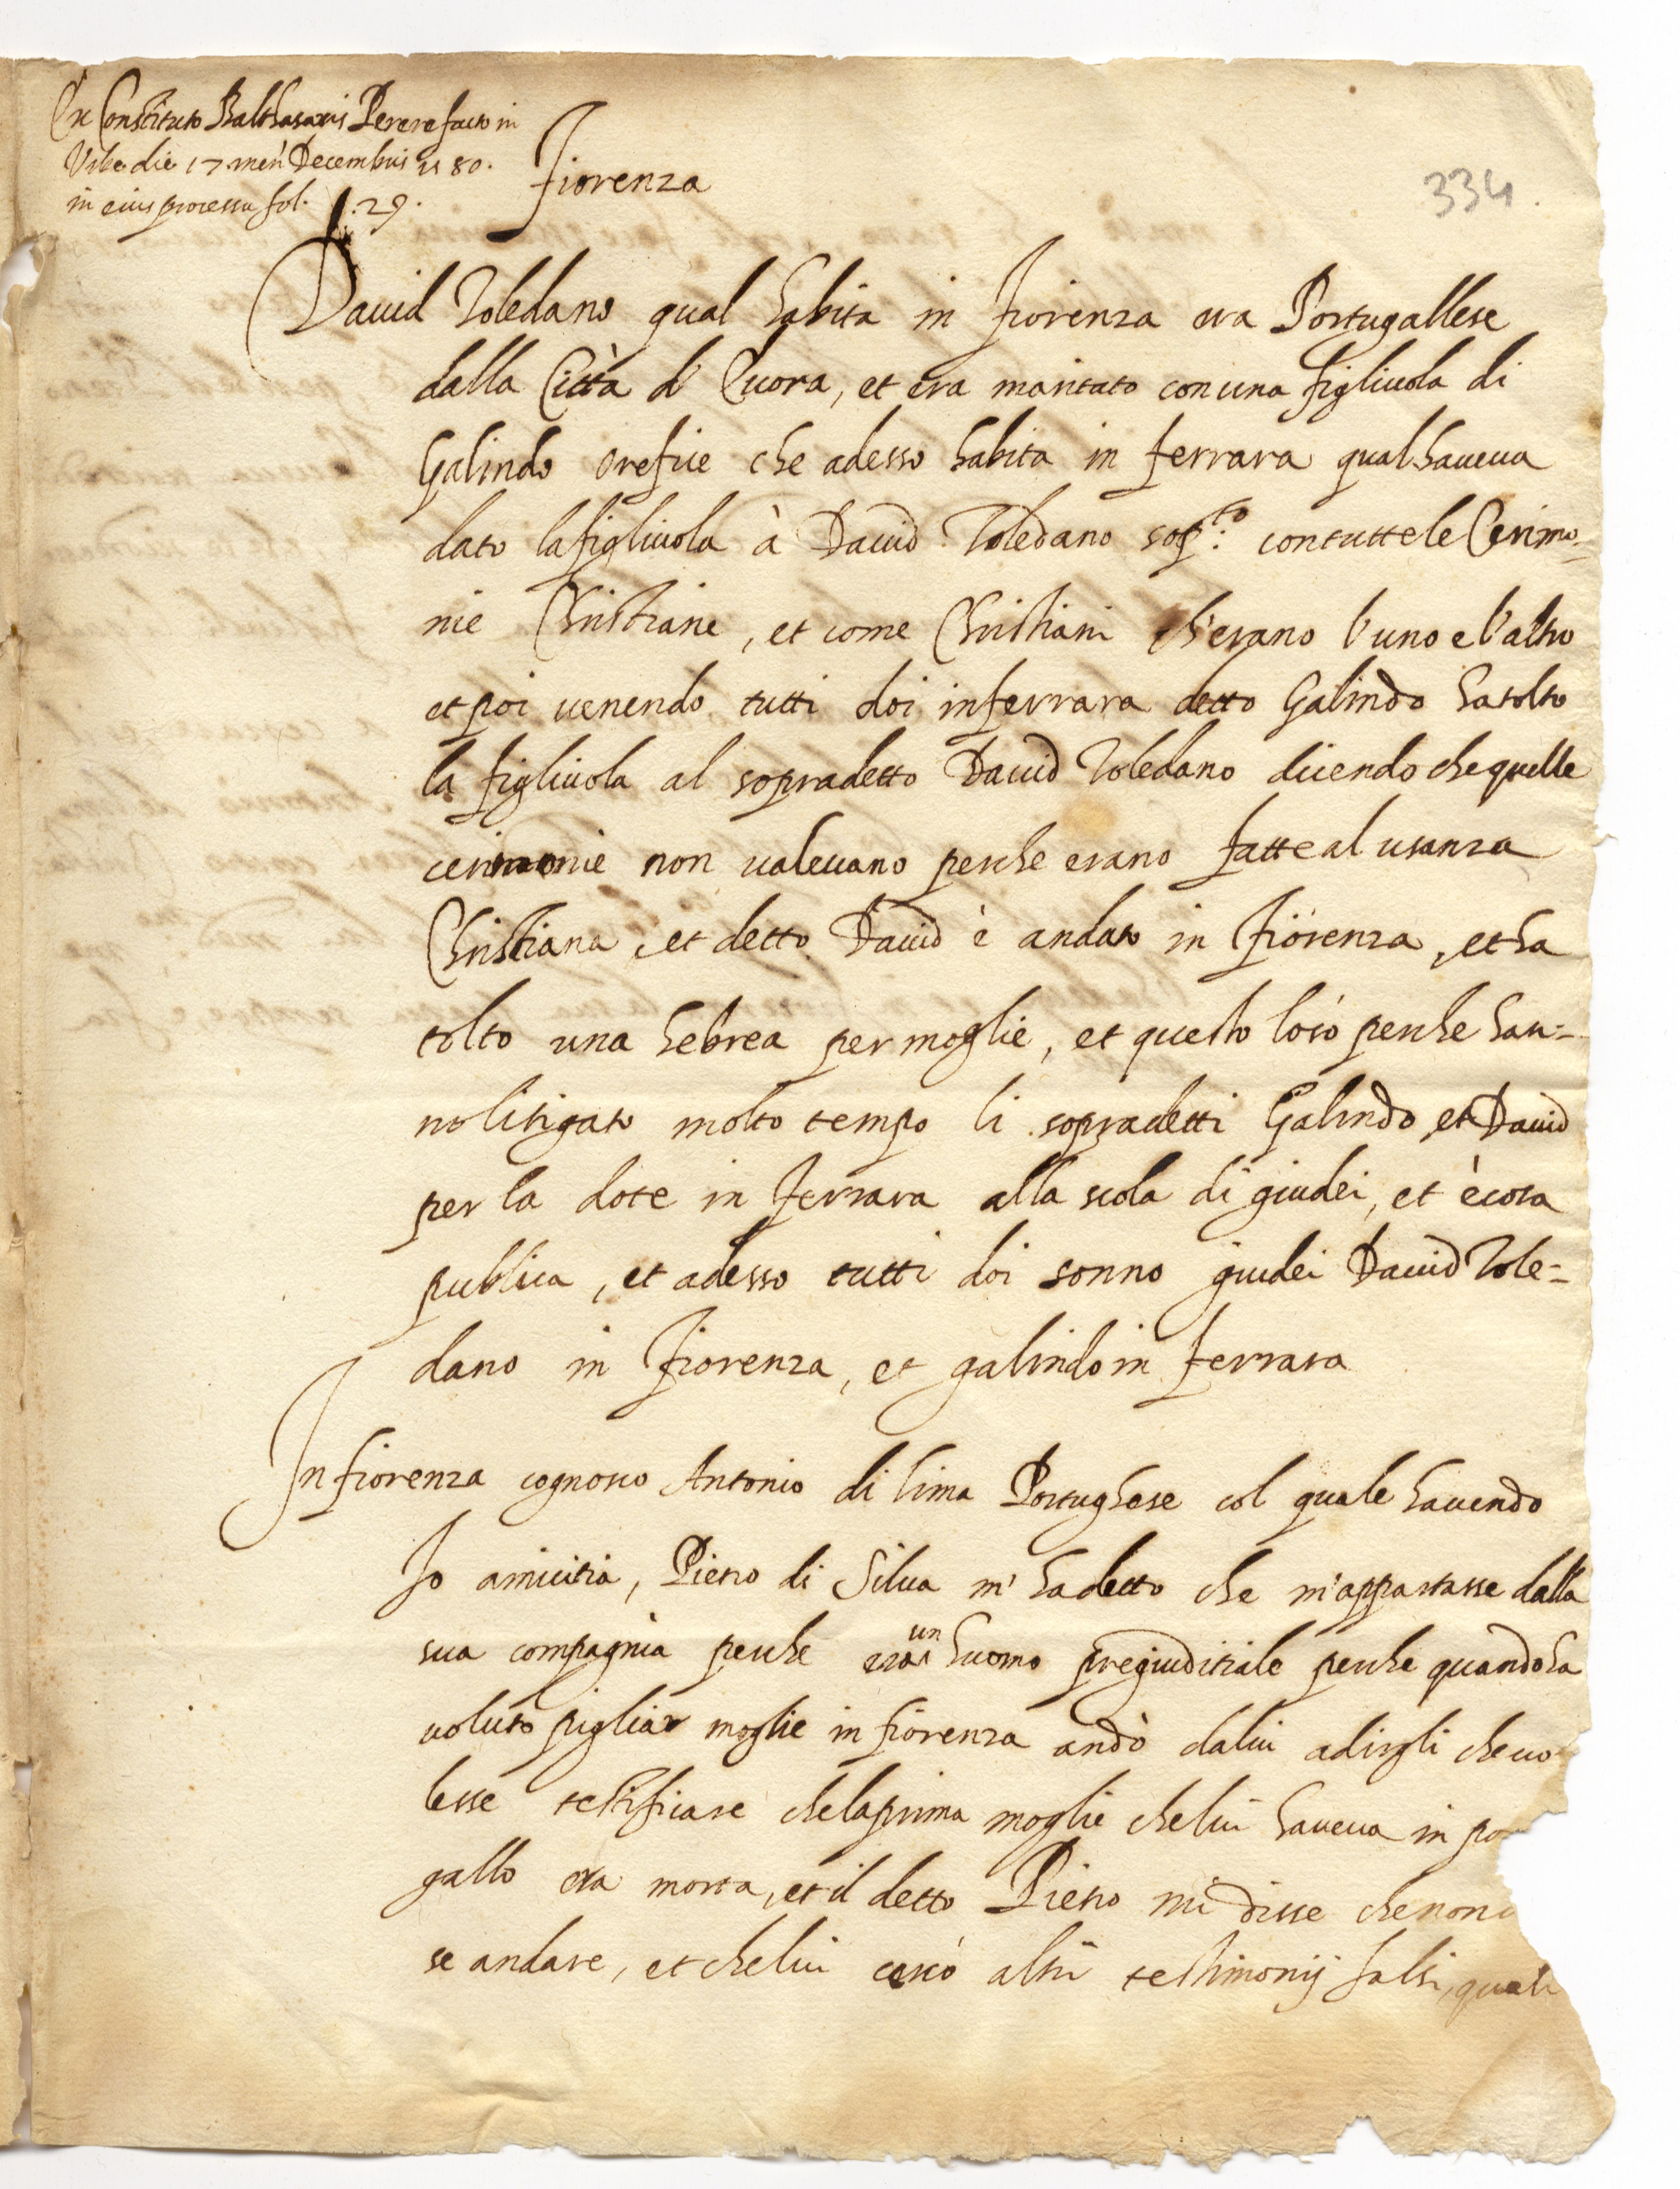 Ex Constituto Balthasaris Perere facto in
Urbe die 17 men Decembris 1580.
in eius processu fol. 29.
Fiorenza
334
David Toledano qual habita in Fiorenza era Portugallese
dalla Città d' Evora, et era maritato con una figliuola di
Galindo orefice che adesso habita in ferrara qual haueua
dato la figliuola à Dauid Toledano sop.to con tutte le Cerimo=
nie Christiane, et come Christiani ch'erano l'uno e l'altro
et poi uenendo tutti doi in ferrara detto Galindo ha tolto
la figliuola al sopradetto Dauid Toledano dicendo che quelle
cerimonie non ualeuano perche erano fatte al usanza
Christiana, et detto Dauid è andato in Fiorenza, et ha
tolto una hebrea per moglie, et questo lo sò perche han=
no litigato molto tempo li sopradetti Galindo et Dauid
per la dote in ferrara alla scola di giudei, et è cosa
publica, et adesso tutti doi sonno giudei Dauid Tole=
dano in Fiorenza, et galindo in ferrara
In fiorenza cognosco Antonio di lima Portughese col quale hauendo
Io amicitia, Pietro di Silua m' ha detto che m'appartasse dalla
sua compagnia perche era un huomo pregiuditiale perche quando ha
uoluto pigliar moglie in fiorenza andò da lui a dirgli che uo
lesse testificare che la prima moglie che lui haueua in po
gallo era morta, et il detto Pietro mi disse che non
se andare, et che lui cercò altri testimonij falsi, quali